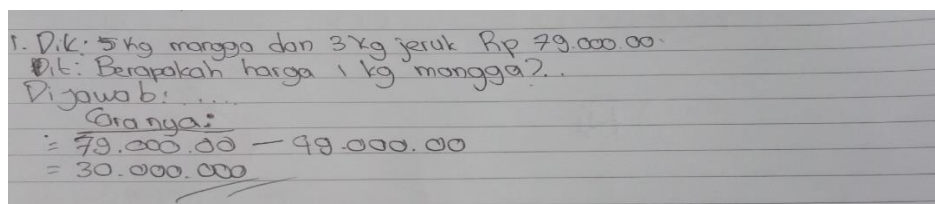 1. Dik: 5 kg mangga dan 3 kg jeruk Rp 79.000.00.
Dit: Berapakah harga 1 kg mangga?..
Dijawab: .....
Caranya:
= 79.000.00 - 49.000.00
= 30.000.000